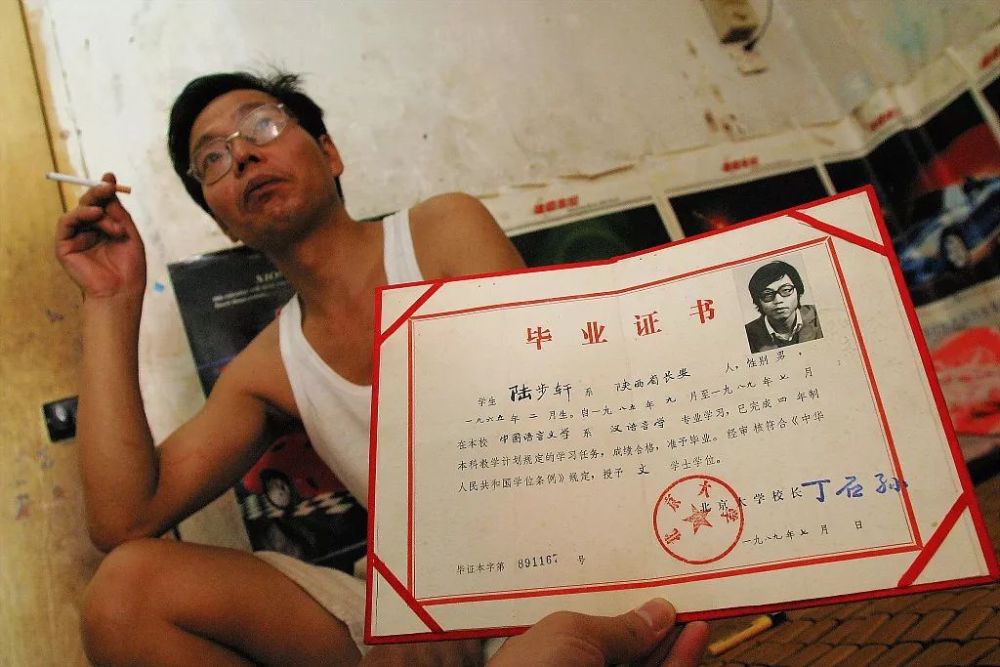 毕业证书
学生 陆步轩 系 陕西省长安 人，性别 男，
一九六五年 二 月生，自一九八五年 九 月至一九八九年 七 月
在本校 中国语言文学 系 汉语言学 专业学习，已完成四年制
本科教学计划规定的学习任务，成绩合格，准予毕业。经审核符合《中华
人民共和国学位条例》规定，授予 文 学士学位。
北京大学
北京大学校长 丁石孙
一九八九年七月 日
毕证本字第 891167 号